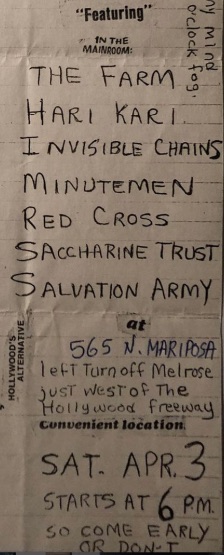 "Featuring"
IN THE
MAINROOM:
my Mind
o'clock fog.
THE FARM
HARI KARI.
INVISIBLE CHAINS
MINUTEMEN
RED CROSS
SACCHARINE TRUST
SALVATION ARMY
at
565 N. MARIPOSA
left Turn off Melrose
just west of The
Hollywood freeway
Convenient location.
HOLLYWOOD'S
ALTERNATIVE
SAT. APR. 3
STARTS AT 6 P.M.
SO COME EARLY
OR DON'T